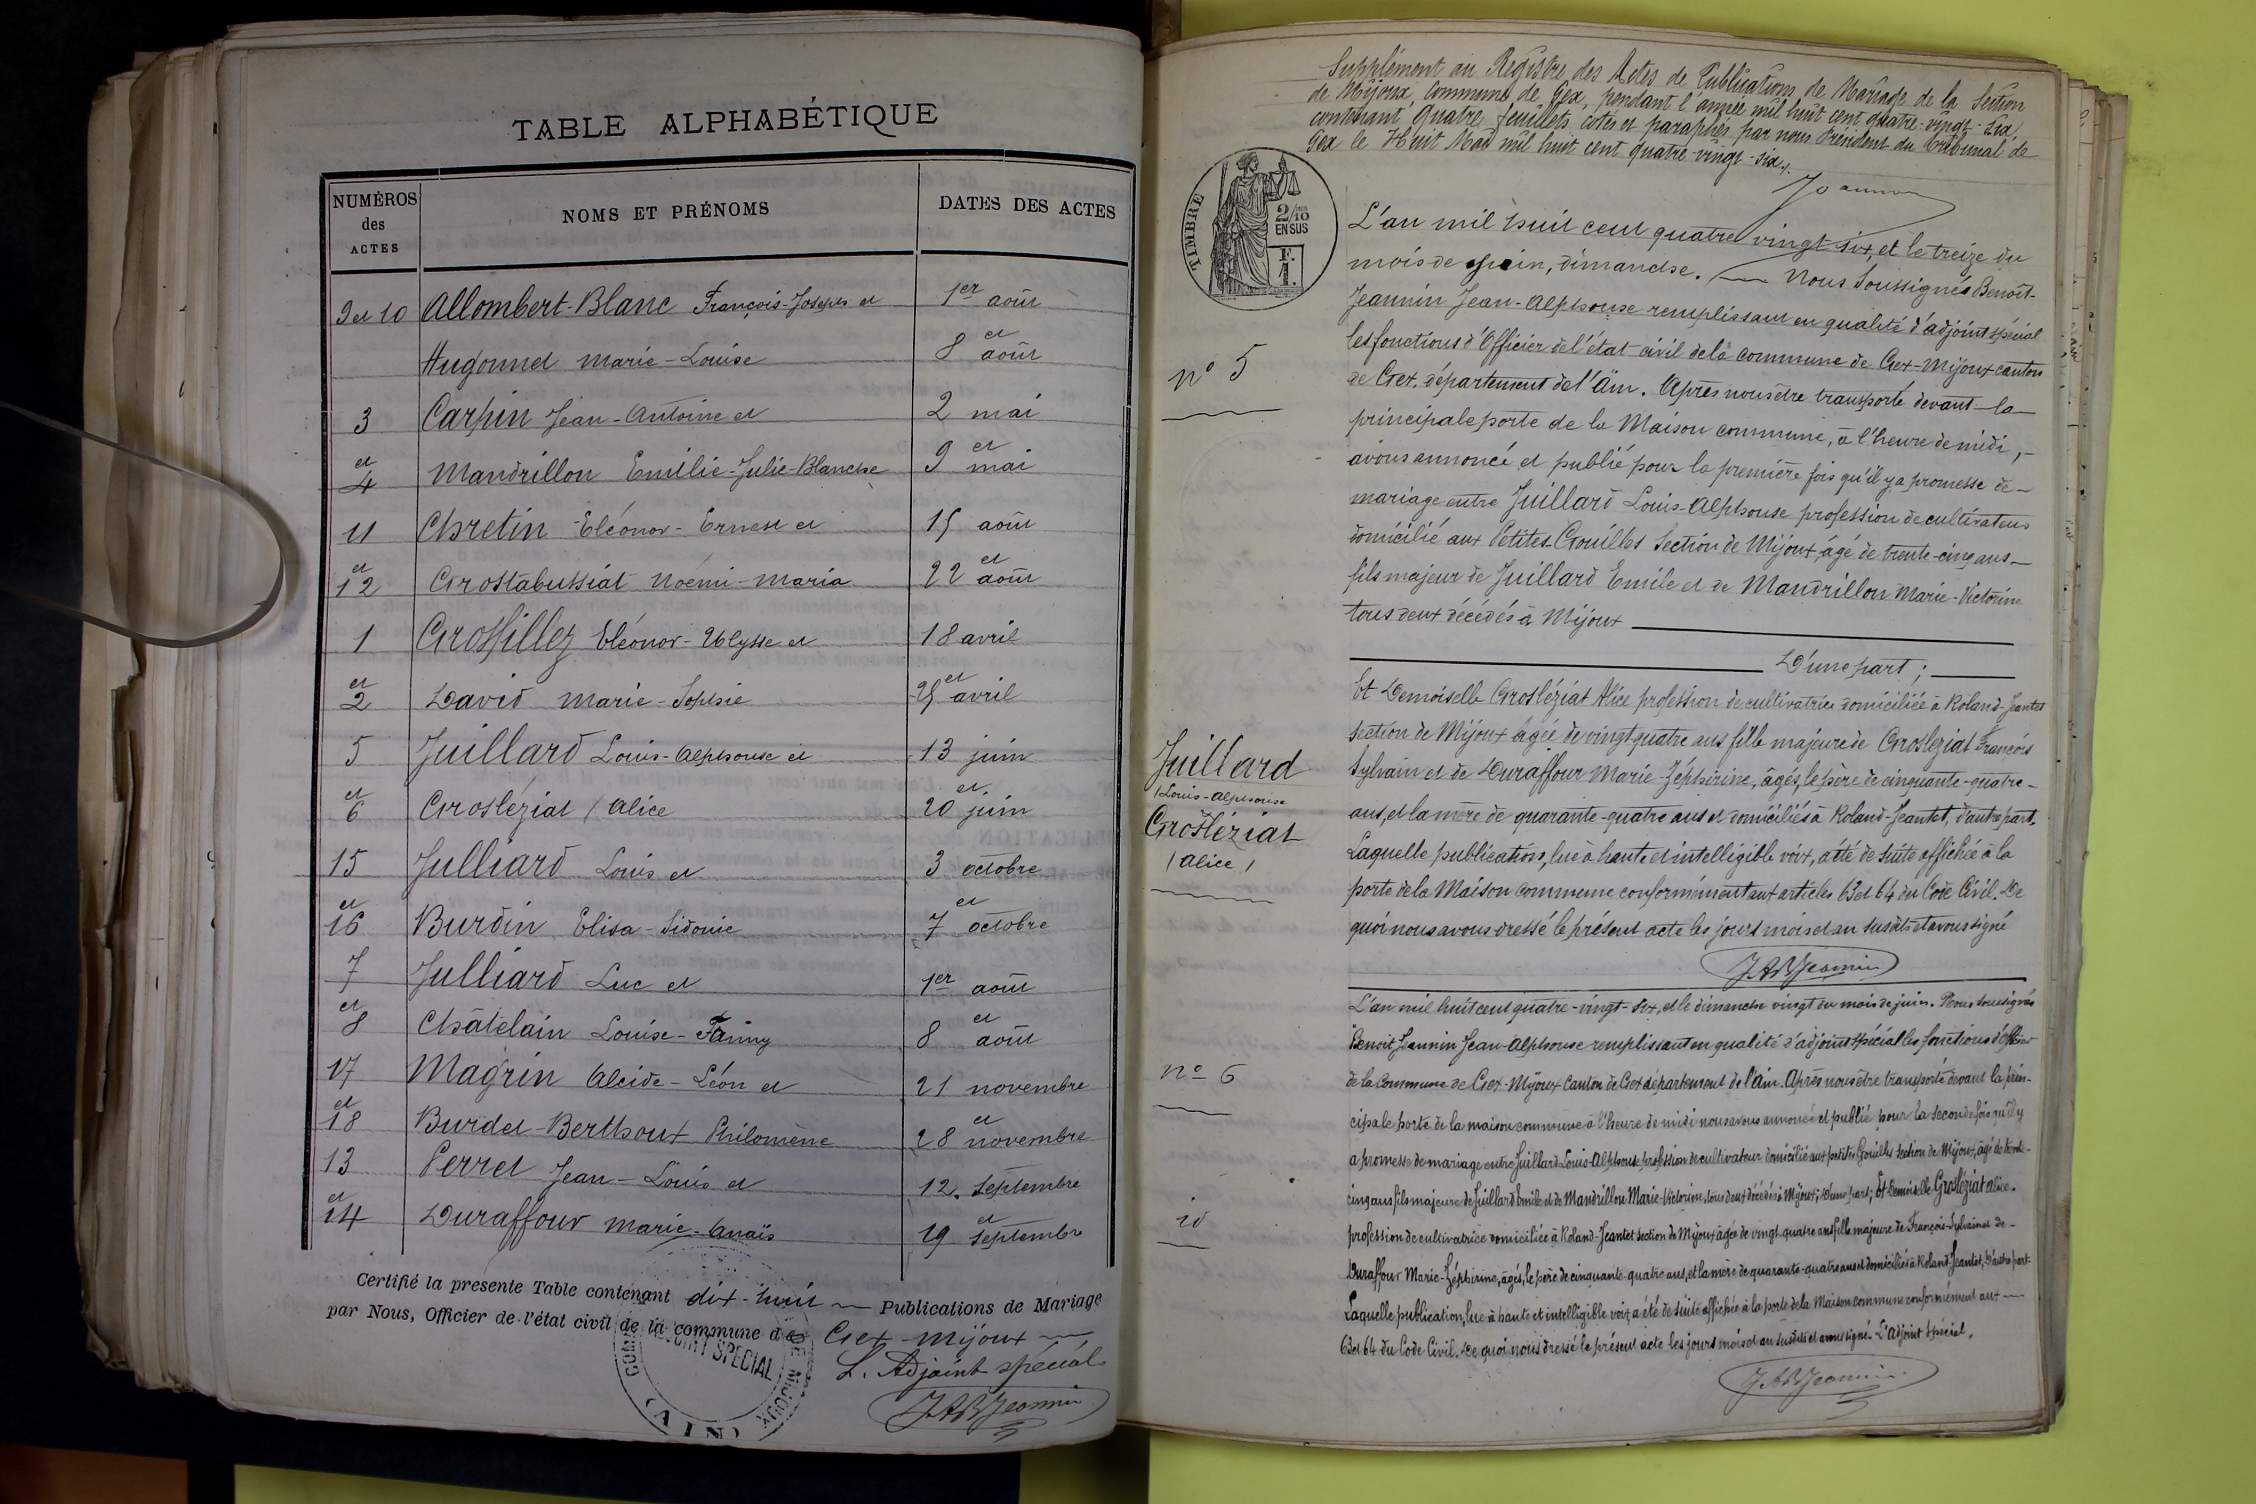 TABLE ALPHABÉTIQUE
NUMÉROS
des
ACTES
NOMS ET PRÉNOMS
DATES DES ACTES
9 et 10 Allombert-Blanc François-Joseph et 1er août
et
Hugonnet Marie-Louise 8 août
3 Carpin Jean-Antoine et 2 mai
et et
4 Mandrillon Emilie-Julie-Blanche 9 mai
11 Chretin Eléonor-Ernest et 15 août
et et
12 Grostabussiat Noémi-Maria 22 août
1 Grosfillez Eléonor-Ulysse et 18 avril
et et
2 David Marie-Sophie 25 avril
5 Juillard Louis-Alphonse et 13 juin
et et
6 Grosléziat (Alice 20 juin
15 Julliard Louis et 3 octobre
et et
16 Burdin Elisa-Sidonie 7 octobre
7 Julliard Luc et 1er août
et et
8 Châtelain Louise-Fanny 8 août
17 Magrin Alcide-Léon et 21 novembre
et et
18 Burdet-Berthoux Philomène 28 novembre
13 Perret Jean-Louis et 12 Septembre
et et
14 Duraffour Marie-Anaïs 19 Septembre
Certifié la presente Table contenant dix-huit Publications de Mariage
par Nous, Officier de l'état civil de la commune de Gex-Mijoux
L'Adjoint spécial
JABJeannin
ADJOINT SPECIAL
MIJOUX
(AIN)
Supplément au Registre des Actes de Publications de Mariage de la Section
de Mijoux, Commune de Gex, pendant l'année mil huit cent quatre-vingt-six,
contenant quatre feuillets cotés et paraphés par nous Président du Tribunal de
Gex le Huit Mai mil huit cent quatre-vingt-six.
TIMBRE
2/10
EN SUS
F.
1.
L'an mil huit cent quatre vingt six, et le treize du
mois de juin, dimanche. Nous Soussignés Benoît-
Jeannin Jean-Alphonse remplissant en qualité d'adjoint spécial
les fonctions d'Officier de l'état civil de la commune de Gex-Mijoux canton
de Gex, département de l'Ain. Après nous être transporté devant la
principale porte de la Maison commune, à l'heure de midi,
avons annoncé et publié pour la première fois qu'il y a promesse de
mariage entre Juillard Louis-Alphonse profession de cultivateur
domicilié aux Petites-Grouilles Section de Mijoux, âgé de trente-cinq ans
fils majeur de Juillard Emile et de Mandrillon Marie-Victorine
tous deux décédés à Mijoux
D'une part;
Et Demoiselle Grosléziat Alice profession de cultivatrice domiciliée à Roland-Jeantet
section de Mijoux âgée de vingt quatre ans fille majeure de Grosleziat François
Sylvain et de Duraffour Marie-Zéphirine, âgés, le père de cinquante-quatre-
ans, et la mère de quarante-quatre ans et domiciliés à Roland-Jeantet, d'autre part.
Laquelle publication, lue à haute et intelligible voix, a été de suite affichée à la
porte de la Maison commune conformément aux articles 63 et 64 du Code Civil. De
quoi nous avons dressé le présent acte les jours mois et an susdits et avons signé
JABJeannin
n° 5
Juillard
(Louis-Alphonse
Grosléziat
(Alice)
L'an mil huit cent quatre-vingt-six, et le dimanche vingt du mois de juin. Nous soussignés
Benoit Jeannin Jean-Alphonse remplissant en qualité d'adjoint spécial les fonctions d'officier
de la Commune de Gex-Mijoux Canton de Gex département de l'Ain. Après nous être transporté devant la prin-
cipale porte de la maison commune à l'heure de midi nous avons annoncé et publié pour la seconde fois qu'il y
a promesse de mariage entre Juillard Louis-Alphonse profession de cultivateur domicilié aux petites Grouilles section de Mijoux, âgé de trente-
cinq ans fils majeure de Juillard Emile et de Mandrillon Marie-Victorine, tous deux décédés à Mijoux; D'une part; Et Demoiselle Grosléziat Alice.
profession de cultivatrice domiciliée à Roland-Jeantet section de Mijoux âgée de vingt quatre ans fille majeure de François-Sylvain et de
Duraffour Marie-Zéphirine, âgés, le père de cinquante-quatre ans, et la mère de quarante-quatre ans et domiciliés à Roland-Jeantet, d'autre part.
Laquelle publication, lue à haute et intelligible voix, a été de suite affichée à la porte de la Maison commune conformément aux
63 et 64 du Code Civil. De quoi nous dressé le présent acte les jours mois et an susdits et avons signé. L'adjoint Spécial,
JABJeannin
n° 6
id